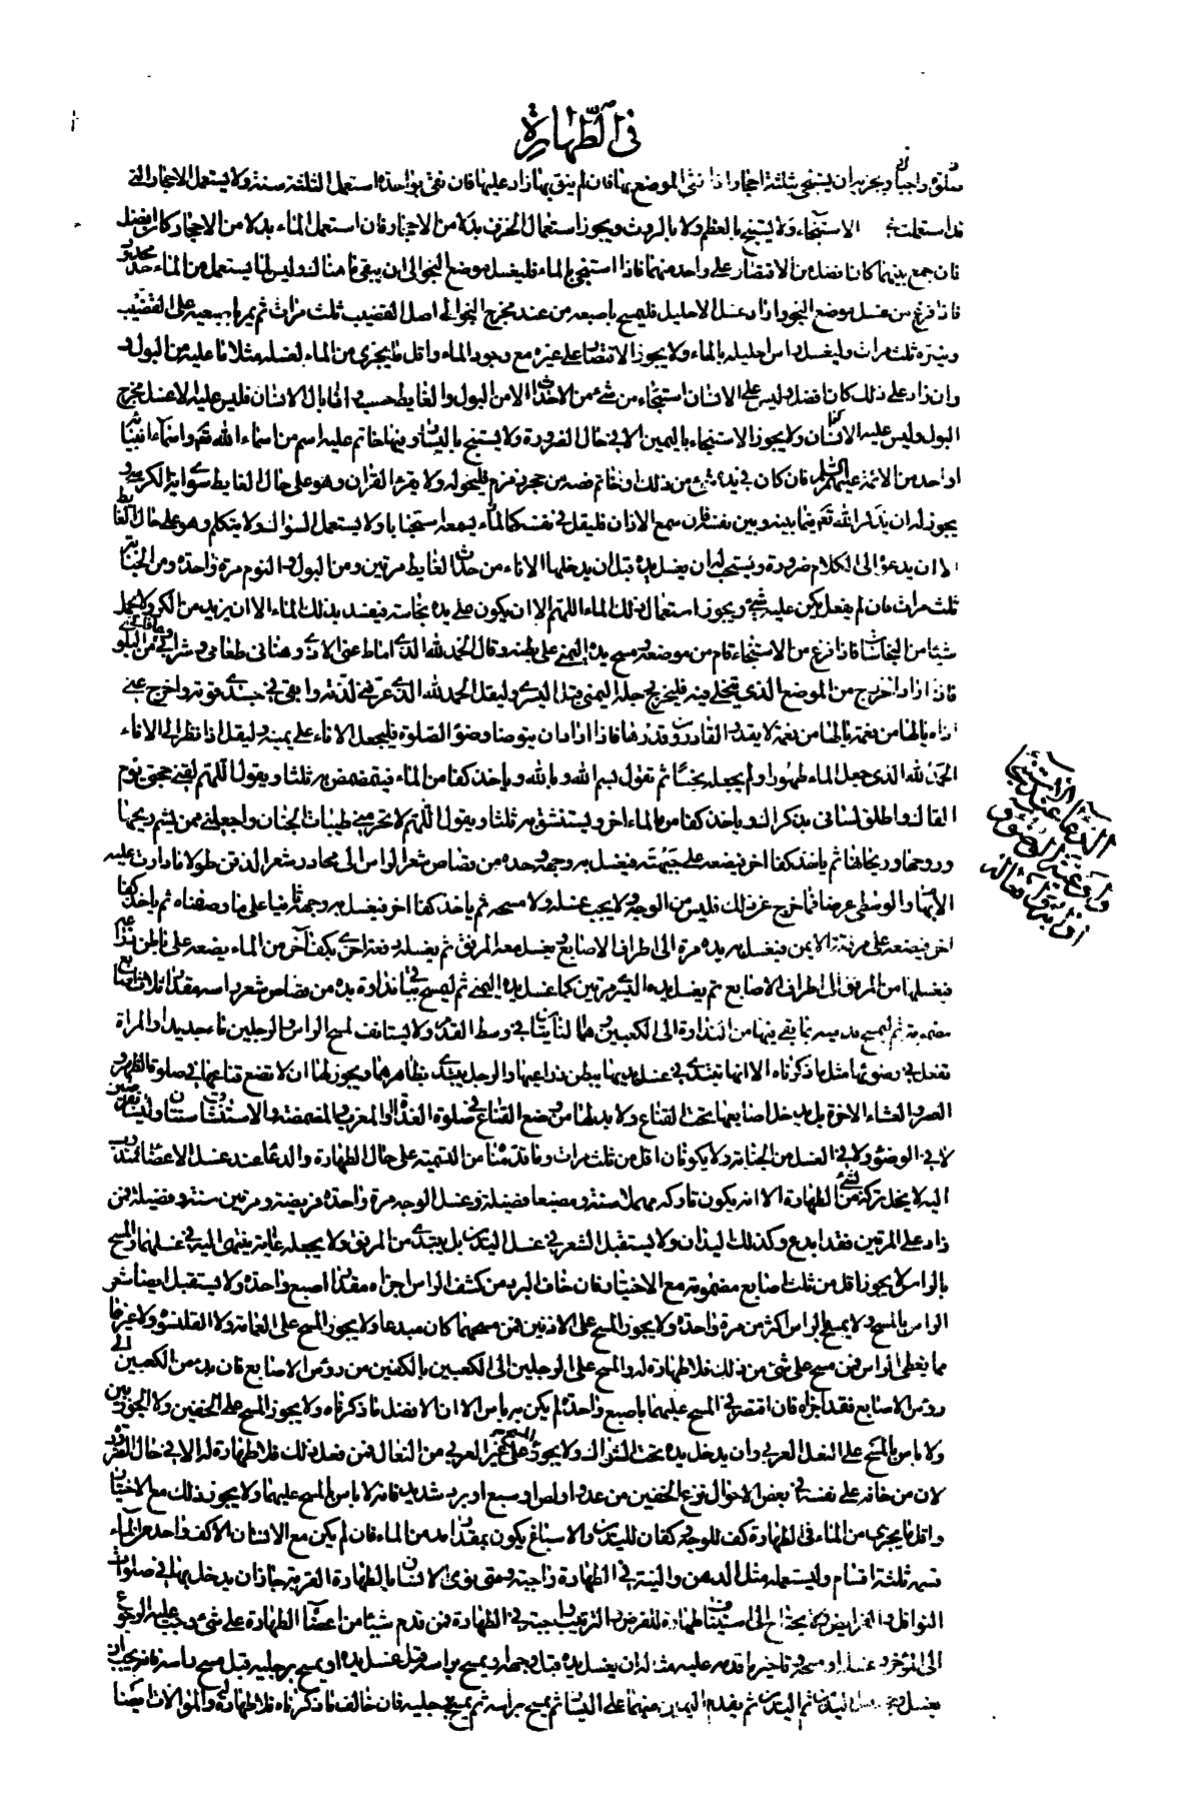 في الطهارة
صلوة واجباً ويجزيه ان يستنجي بثلثة احجار اذا نقي الموضع بها فان لم ينق بها زاد عليها فان نقي بواحدة استعمل الثلثة سنة ولا يستعمل الاحجار التي
قد استعملت في الاستنجاء ولا يستنجي بالعظم ولا بالروث ويجوز استعمال الخزف بدلا من الاحجار فان استعمل الماء بدلا من الاحجار كان افضل
فان جمع بينهما كان افضل من الاقتصار على واحد منهما فاذا استنجى بالماء فليغسل موضع النجو الى ان ينقى ما هنالك وليس لما يستعمل من الماء حد محدود
فاذا فرغ من غسل موضع النجو واراد غسل الاحليل فليمسح باصبعه من عند مخرج النجو الى اصل القضيب ثلث مرات ثم يمر باصبعيه على القضيب
وينتره ثلث مرات وليغسل راس احليله بالماء ولا يجوز الاقتصار على غيره مع وجود الماء واقل ما يجزي من الماء لغسله مثلا ما عليه من البول
وان زاد على ذلك كان افضل وليس على الانسان استنجاء من شئ من الاحداث الا من البول والغايط حسب واذا بال الانسان فليس عليه الا غسل مخرج
البول وليس عليه استنجاء ولا يجوز الاستنجاء باليمين الا في حال الضرورة ولا يستنج باليسار وفيها خاتم عليه اسم من اسماء الله تعالى واسماء انبيائه
او احد من الائمة عليهم السلم فان كان في يده شئ من ذلك او خاتم فصه من حجر زمزم فليحوله ولا يقرء القران وهو على حال الغايط سوى اية الكرسي و
يجوز له ان يذكر الله تعالى فيما بينه وبين نفسه فان سمع الاذان فليقل في نفسه كما يسمعه استحبابا ولا يستعمل السواك ولا يتكلم وهو على حال الغايط
الا ان يدعوه الى الكلام ضرورة ويستحب له ان يغسل يده قبل ان يدخلها الاناء من حدث الغايط مرتين ومن البول والنوم مرة واحدة ومن الجنابة
ثلث مرات فان لم يفعل لم يكن عليه شئ ويجوز استعمال ذلك الماء اللهم الا ان يكون على يده نجاسة فيفسد بذلك الماء الا ان يزيد على الكر ولا يحمل
شيئا من النجاسات فاذا فرغ من الاستنجاء قام من موضعه ومسح يده اليمنى على بطنه وقال الحمد لله الذي اماط عني الاذى وهناني طعامي وشرابي وعافاني من البلوى
فاذا اراد الخروج من الموضع الذي يتخلى فيه فليخرج رجله اليمنى قبل اليسرى وليقل الحمد لله الذي عرفني لذته وابقى في جسدي قوته واخرج عني
اذاه يا لها من نعمة يا لها من نعمة لا يقدر القادرون قدرها فاذا اراد ان يتوضا وضوء الصلوة فليجعل الاناء على يمينه وليقل اذا نظر الى الماء
الحمد لله الذي جعل الماء طهورا ولم يجعله نجسا ثم تقول بسم الله وبالله وياخذ كفا من الماء فيتمضمض به ثلثا ويقول اللهم لقني حجتي يوم
القاك واطلق لساني بذكرك وياخذ كفا من الماء اخر ويستنشق به ثلثا ويقول اللهم لا تحرمني طيبات الجنان واجعلني ممن يشم ريحها
وروحها وريحانها ثم ياخذ كفا اخر فيضعه على جبهته فيغسل به وجهه وحده من قصاص شعر الراس الى محادر شعر الذقن طولا وما دارت عليه
الابهام والوسطى عرضا فما خرج عن ذلك فليس من الوجه ولا يجب غسله ولا مسحه ثم ياخذ كفا اخر فيغسل به وجهه ثانيا على ما وصفناه ثم ياخذ كفا
اخر فيضعه على مرفقه الايمن فيغسل به يده مرة الى اطراف الاصابع ويغسل معه المرفق ثم يغسله دفعة اخرى بكف آخر من الماء يضعه على باطن ذراعه
فيغسلها من المرفق الى اطراف الاصابع ثم يغسل يده اليسرى مرتين كما غسل يده اليمنى ثم ليمسح بباقي نداوة يده من قصاص شعر راسه مقدار ثلاث اصابع
مضمومة ثم ليمسح قدميه بما بقي فيها من النداوة الى الكعبين وهما النابتان في وسط القدم ولا يستانف لمسح الراس والرجلين ماء جديدا والمراة
تفعل في وضوئها مثل ما ذكرناه الا انها تبتدئ في غسل يديها بباطن ذراعيها والرجل يبتدئ بظاهرهما ويجوز لها ان لا تضع قناعها في صلوة الظهر و
العصر والعشاء الاخرة بل يدخل اصابعها تحت القناع ولا بد لها من وضع القناع في صلوة الغداة والمغرب والمضمضة والاستنشاق سنتان وليسا بفرضين
لا في الوضوء ولا في الغسل من الجنابة ولا يكونان اقل من ثلث مرات وما قدمنا من التسمية على حال الطهارة والدعاء عند غسل الاعضاء مندوب
اليه لا يخل تركه بشئ من الطهارة الا انه يكون تاركه مهملا سنة ومضيعا فضيلة وغسل الوجه مرة واحدة فريضة ومرتين سنة وفضيلة فمن
زاد على المرتين فقد ابدع وكذلك اليدان ولا يستقبل الشعر في غسل اليدين بل يبتدئ من المرفق ولا يجعله غاية ينتهى اليه في غسلهما والمسح
بالراس لا يجوز اقل من ثلث اصابع مضمومة مع الاختيار فان خاف البرد من كشف الراس اجزاه مقدار اصبع واحدة ولا يستقبل ايضا شعر
الراس بالمسح ولا يمسح الراس اكثر من مرة واحدة ولا يجوز المسح على الاذنين فمن مسحهما كان مبدعا ولا يجوز المسح على العمامة ولا القلنسوة ولا غيرها
مما يغطى الراس فمن مسح على شئ من ذلك فلا طهارة له والمسح على الرجلين الى الكعبين بالكفين من روس الاصابع فان بدء من الكعبين الى
روس الاصابع فقد اجزاه فان اقتصر في المسح عليهما باصبع واحدة لم يكن به باس الا ان الافضل ما ذكرناه ولا يجوز المسح على الخفين ولا الجوربين
ولا باس بالمسح على النعل العربي وان لم يدخل يده تحت الشراك ولا يجوز المسح على غير العربي من النعال فمن فعل ذلك فلا طهارة له الا في حال الضرورة
لان من خاف على نفسه في بعض الاحوال نزع الخفين من عدو او لص او سبع او برد شديد فانه لا باس بالمسح عليهما ولا يجوز ذلك مع الاختيار
واقل ما يجزي من الماء في الطهارة كف للوجه وكفان لليدين والاسباغ يكون بمقدار مد من الماء فان لم يكن مع الانسان الا كف واحد من الماء
قسمه ثلثة اقسام وليستعمله مثل الدهن والنية في الطهارة واجبة ومتى نوى الانسان بالطهارة القربة جاز ان يدخل بها في صلوات
النوافل والفرايض ولا يحتاج الى استيناف طهارة للفرض والترتيب واجب في الطهارة فمن قدم شيئا من اعضاء الطهارة على شئ وجب عليه الرجوع
الى المؤخر وغسله او مسحه وتاخير ما قدمه عليه مثاله ان يغسل يده قبل وجهه او يمسح براسه قبل غسل يده او يمسح برجليه قبل مسح راسه فانه يجب ان
يغسل وجهه ثم اليدين ثم يقدم اليمين منهما على اليسار ثم يمسح براسه ثم يمسح برجليه فان خالف ما ذكرناه فلا طهارة له والموالات ايضا
الدعاء عند الاستنجاء
وآداب غير الوضوء